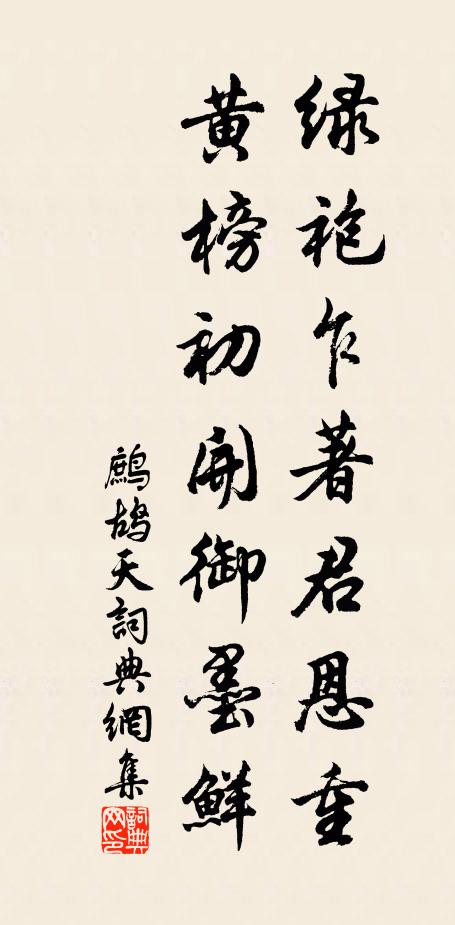 緑袍乍著君恩重
黃榜初開御墨鮮
鷓鴣天詞典網集
詞典网印